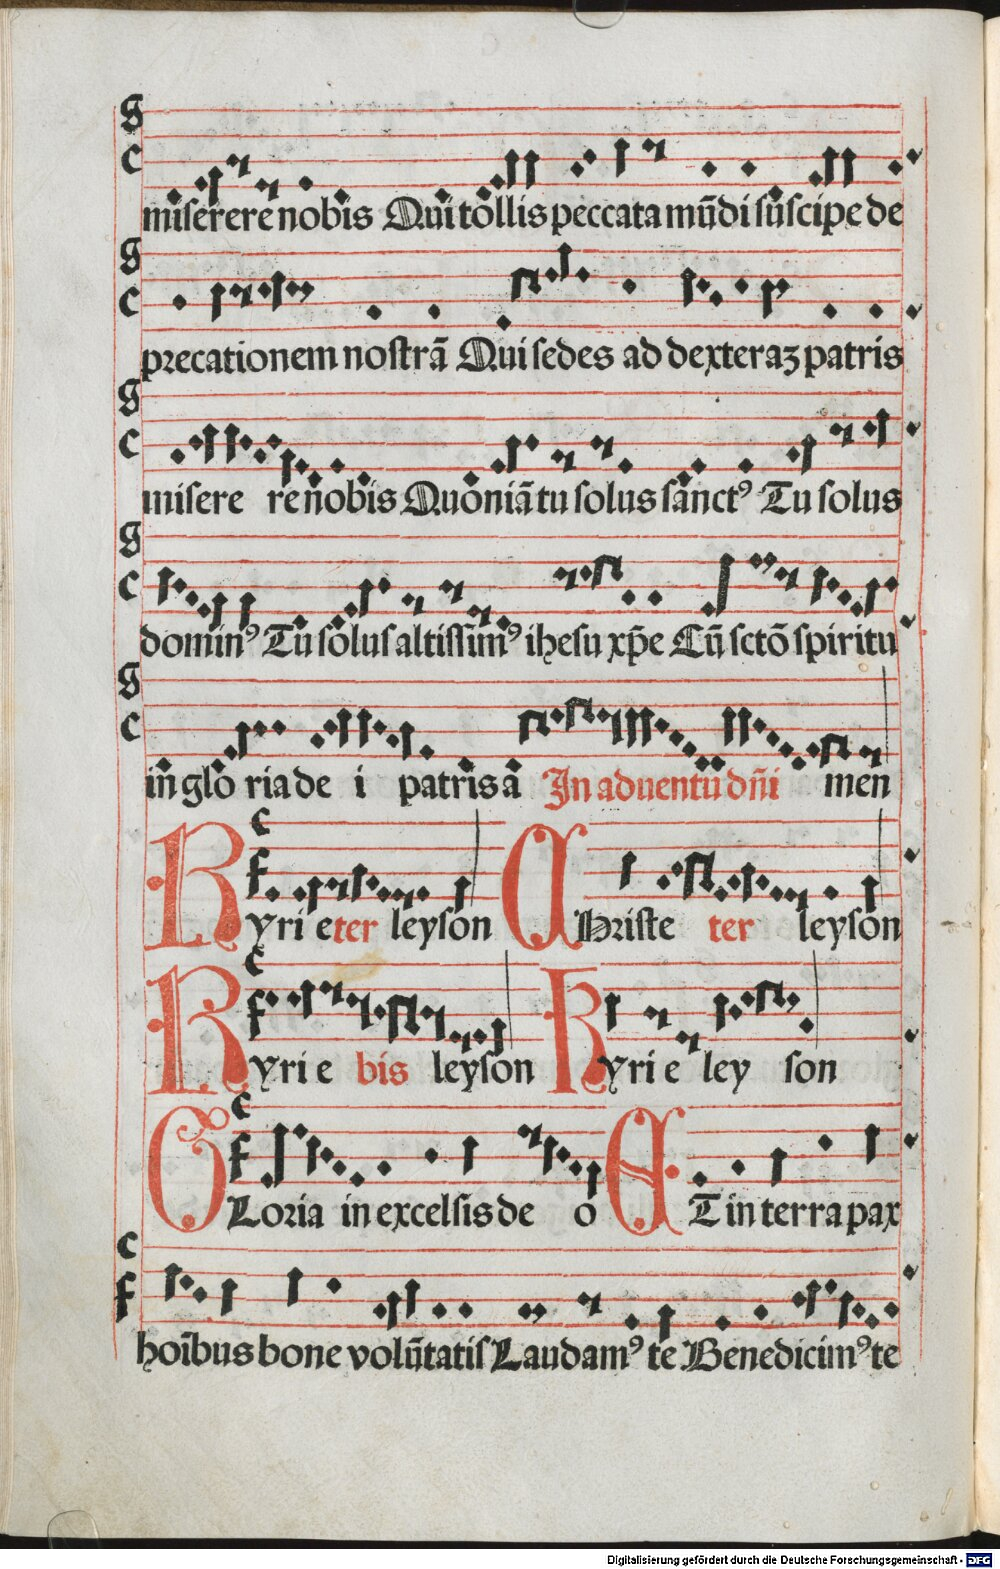 miserere nobis Qui tollis peccata mūdi suscipe de
precationem nostrā Qui sedes ad dexteraꝫ patris
misere re nobis Quoniā tu solus sanctꝰ Tu solus
dominꝰ Tu solus altissimꝰ ihesu xp̄e Cū sctō spiritu
in glo ria de i patris ā In aduentu dn̄i men
Kyri e ter leyson Christe ter leyson
Kyri e bis leyson Kyri e ley son
Gloria in excelsis de o Et in terra pax
hoībus bone volūtatis Laudamꝰ te Benedicimꝰ te
Digitalisierung gefördert durch die Deutsche Forschungsgemeinschaft - DFG